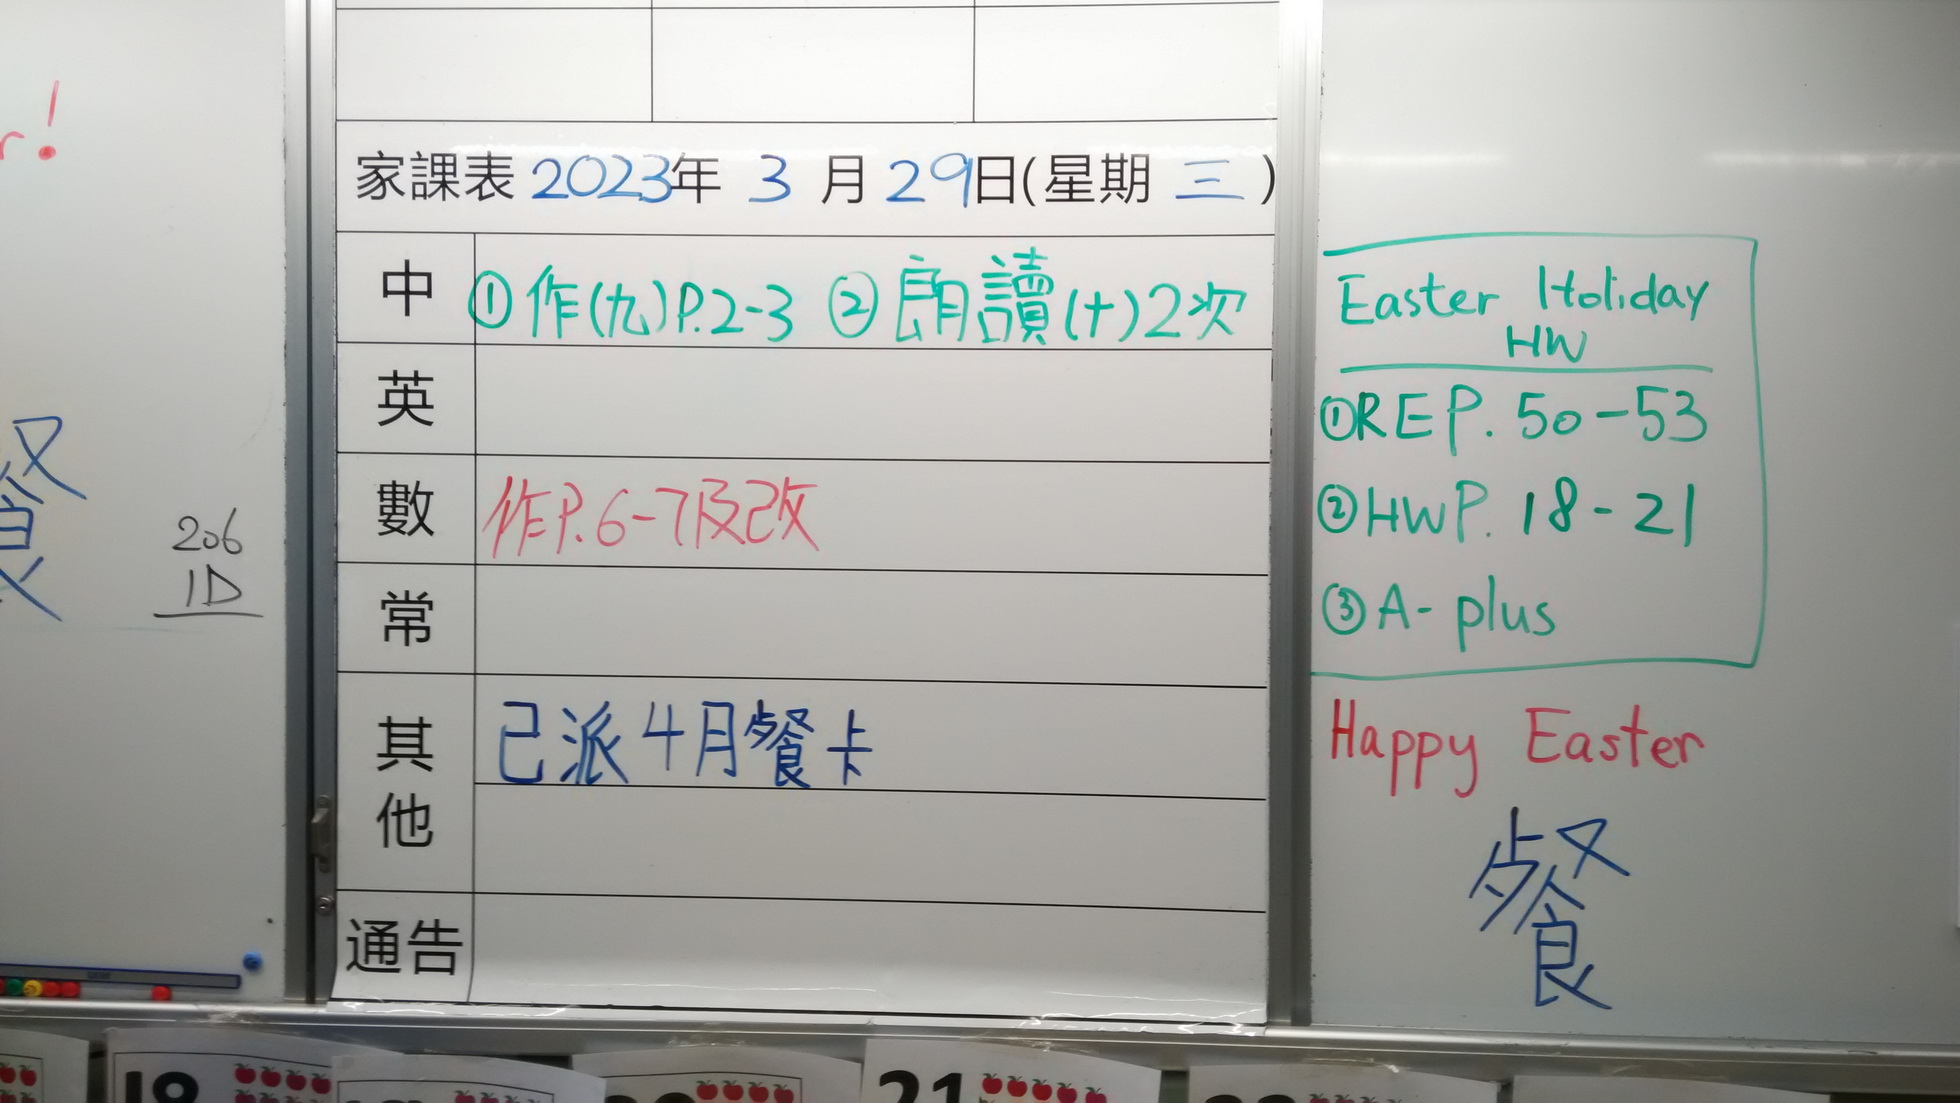 r!
206
1D
家課表 2023年 3 月 29日(星期 三 )
中 ①作(九)P.2-3 ②朗讀(十)2次
英
數 作P.6-7及改
常
其他 已派4月餐卡
通告
Easter Holiday
HW
①REP. 50-53
②HWP. 18-21
③A-plus
Happy Easter
餐
18
21